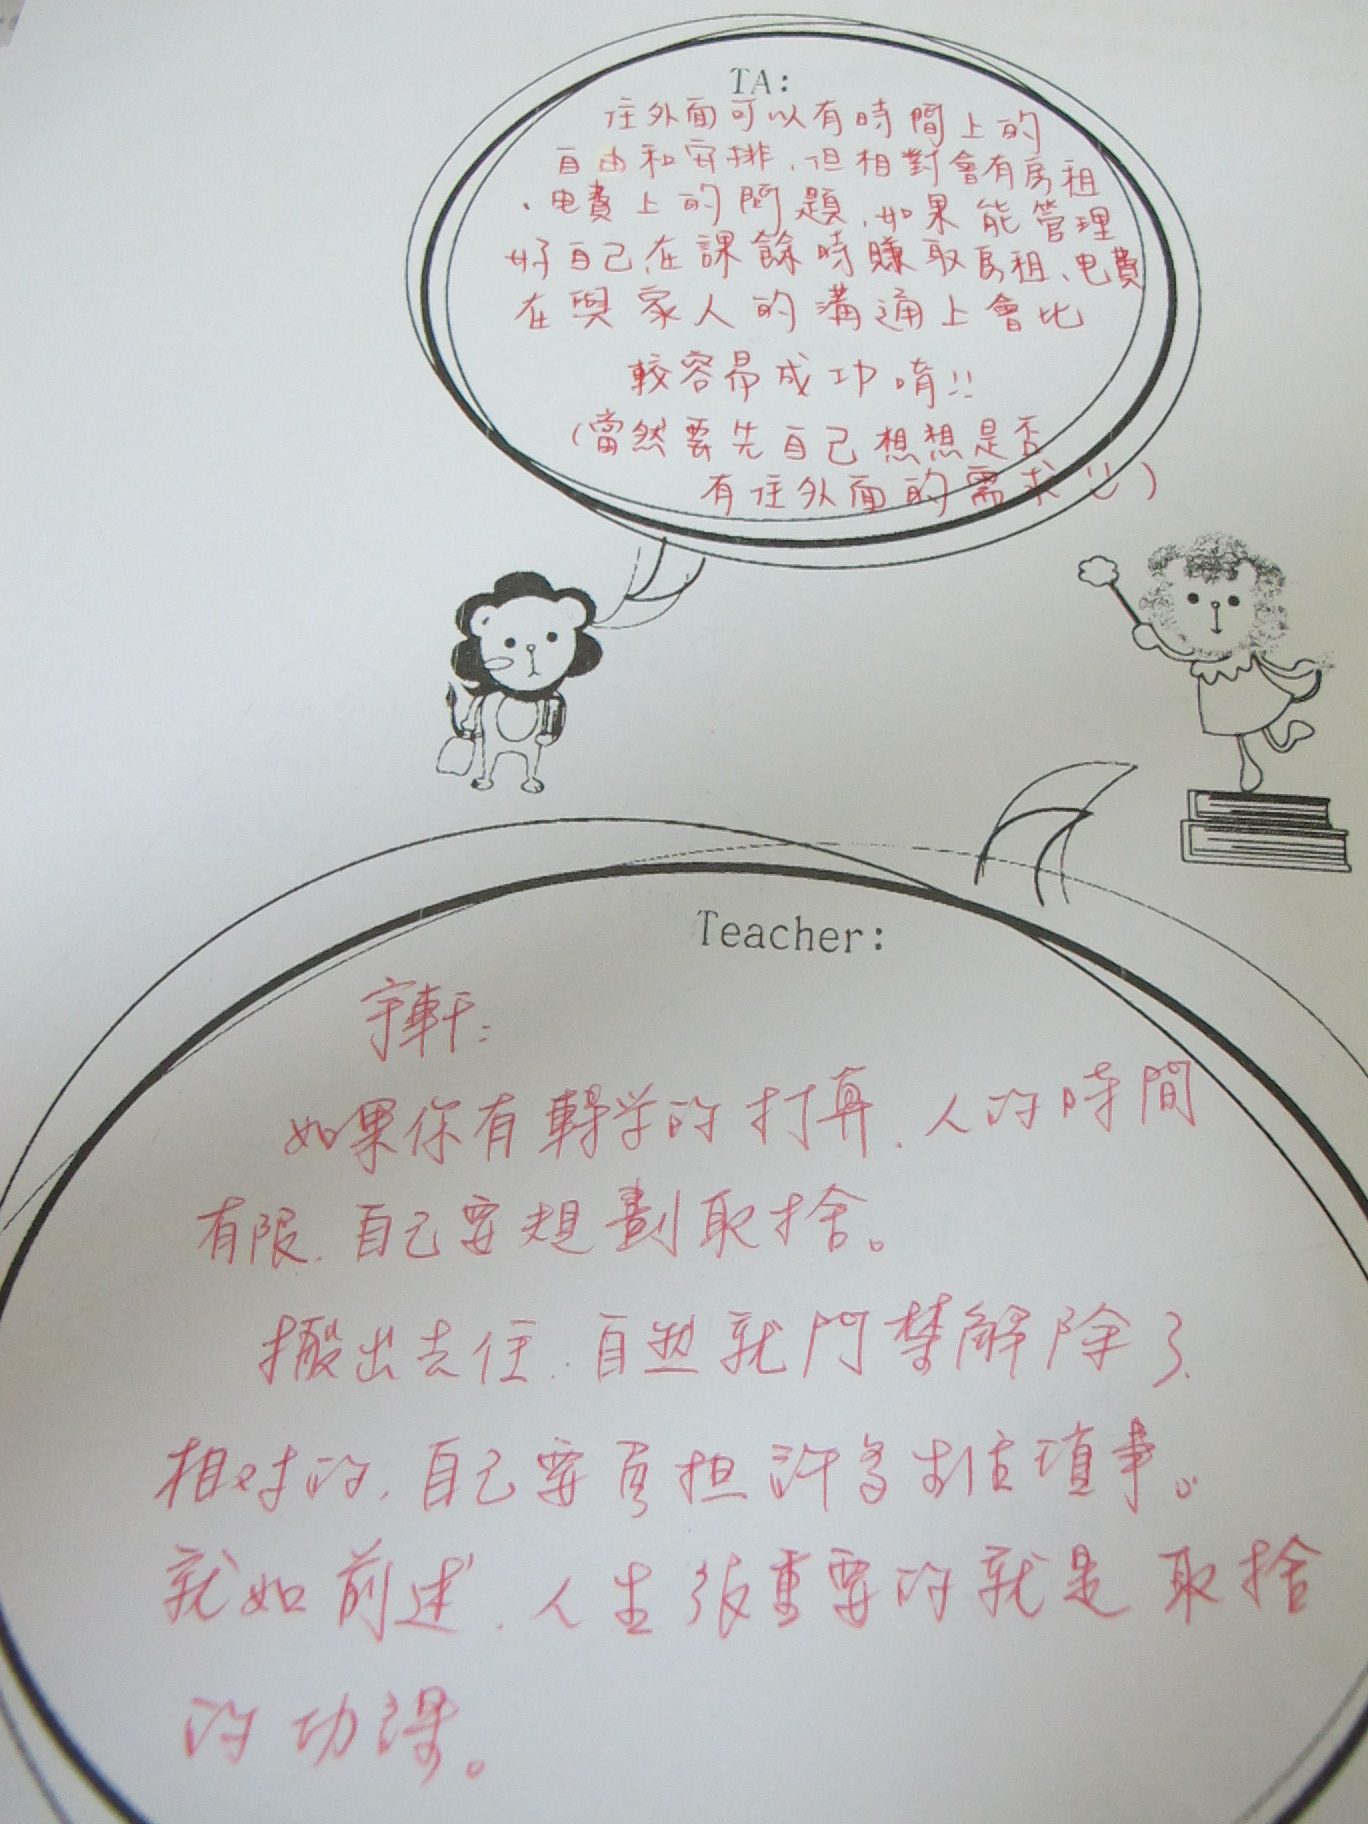 TA:
住外面可以有時間上的
自由和安排,但相對會有房租
、电費上的問題,如果能管理
好自己在課餘時賺取房租、电費
在與家人的溝通上會比
較容易成功唷!!
(當然要先自己想想是否
有住外面的需求)
Teacher:
宇軒:
如果你有轉学的打算,人的時間
有限,自己要規劃取捨。
搬出去住,自然就門禁解除了,
相对的,自己要負担許多的事。
就如前述,人生很重要的就是取捨
的功課。